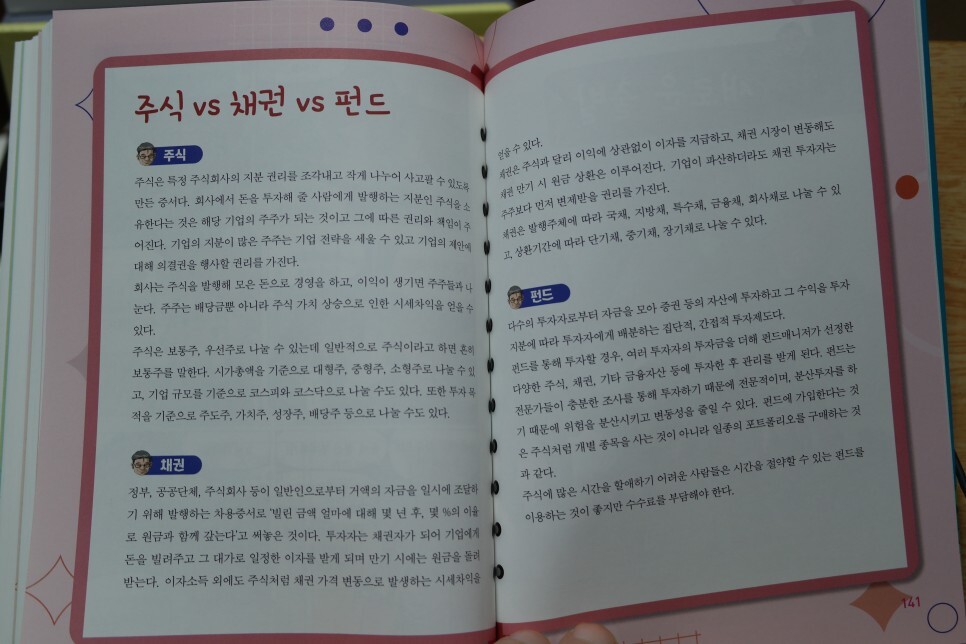 주식 vs 채권 vs 펀드
주식
주식은 특정 주식회사의 지분 권리를 조각내고 작게 나누어 사고팔 수 있도록
만든 증서다. 회사에서 돈을 투자해 줄 사람에게 발행하는 지분인 주식을 소
유한다는 것은 해당 기업의 주주가 되는 것이고 그에 따른 권리와 책임이 주
어진다. 기업의 지분이 많은 주주는 기업 전략을 세울 수 있고 기업의 제안에
대해 의결권을 행사할 권리를 가진다.
회사는 주식을 발행해 모은 돈으로 경영을 하고, 이익이 생기면 주주들과 나
눈다. 주주는 배당금뿐 아니라 주식 가치 상승으로 인한 시세차익을 얻을 수
있다.
주식은 보통주, 우선주로 나눌 수 있는데 일반적으로 주식이라고 하면 흔히
보통주를 말한다. 시가총액을 기준으로 대형주, 중형주, 소형주로 나눌 수 있
고, 기업 규모를 기준으로 코스피와 코스닥으로 나눌 수도 있다. 또한 투자 목
적을 기준으로 주도주, 가치주, 성장주, 배당주 등으로 나눌 수도 있다.
채권
정부, 공공단체, 주식회사 등이 일반인으로부터 거액의 자금을 일시에 조달하
기 위해 발행하는 차용증서로 '빌린 금액 얼마에 대해 몇 년 후, 몇 %의 이율
로 원금과 함께 갚는다'고 써놓은 것이다. 투자자는 채권자가 되어 기업에게
돈을 빌려주고 그 대가로 일정한 이자를 받게 되며 만기 시에는 원금을 돌려
받는다. 이자소득 외에도 주식처럼 채권 가격 변동으로 발생하는 시세차익을
얻을 수 있다.
채권은 주식과 달리 이익에 상관없이 이자를 지급하고, 채권 시장이 변동해도
채권 만기 시 원금 상환은 이루어진다. 기업이 파산하더라도 채권 투자자는
주주보다 먼저 변제받을 권리를 가진다.
채권은 발행주체에 따라 국채, 지방채, 특수채, 금융채, 회사채로 나눌 수 있
고, 상환기간에 따라 단기채, 중기채, 장기채로 나눌 수 있다.
펀드
다수의 투자자로부터 자금을 모아 증권 등의 자산에 투자하고 그 수익을 투자
지분에 따라 투자자에게 배분하는 집단적, 간접적 투자제도다.
펀드를 통해 투자할 경우, 여러 투자자의 투자금을 더해 펀드매니저가 선정한
다양한 주식, 채권, 기타 금융자산 등에 투자한 후 관리를 받게 된다. 펀드는
전문가들이 충분한 조사를 통해 투자하기 때문에 전문적이며, 분산투자를 하
기 때문에 위험을 분산시키고 변동성을 줄일 수 있다. 펀드에 가입한다는 것
은 주식처럼 개별 종목을 사는 것이 아니라 일종의 포트폴리오를 구매하는 것
과 같다.
주식에 많은 시간을 할애하기 어려운 사람들은 시간을 절약할 수 있는 펀드를
이용하는 것이 좋지만 수수료를 부담해야 한다.
141